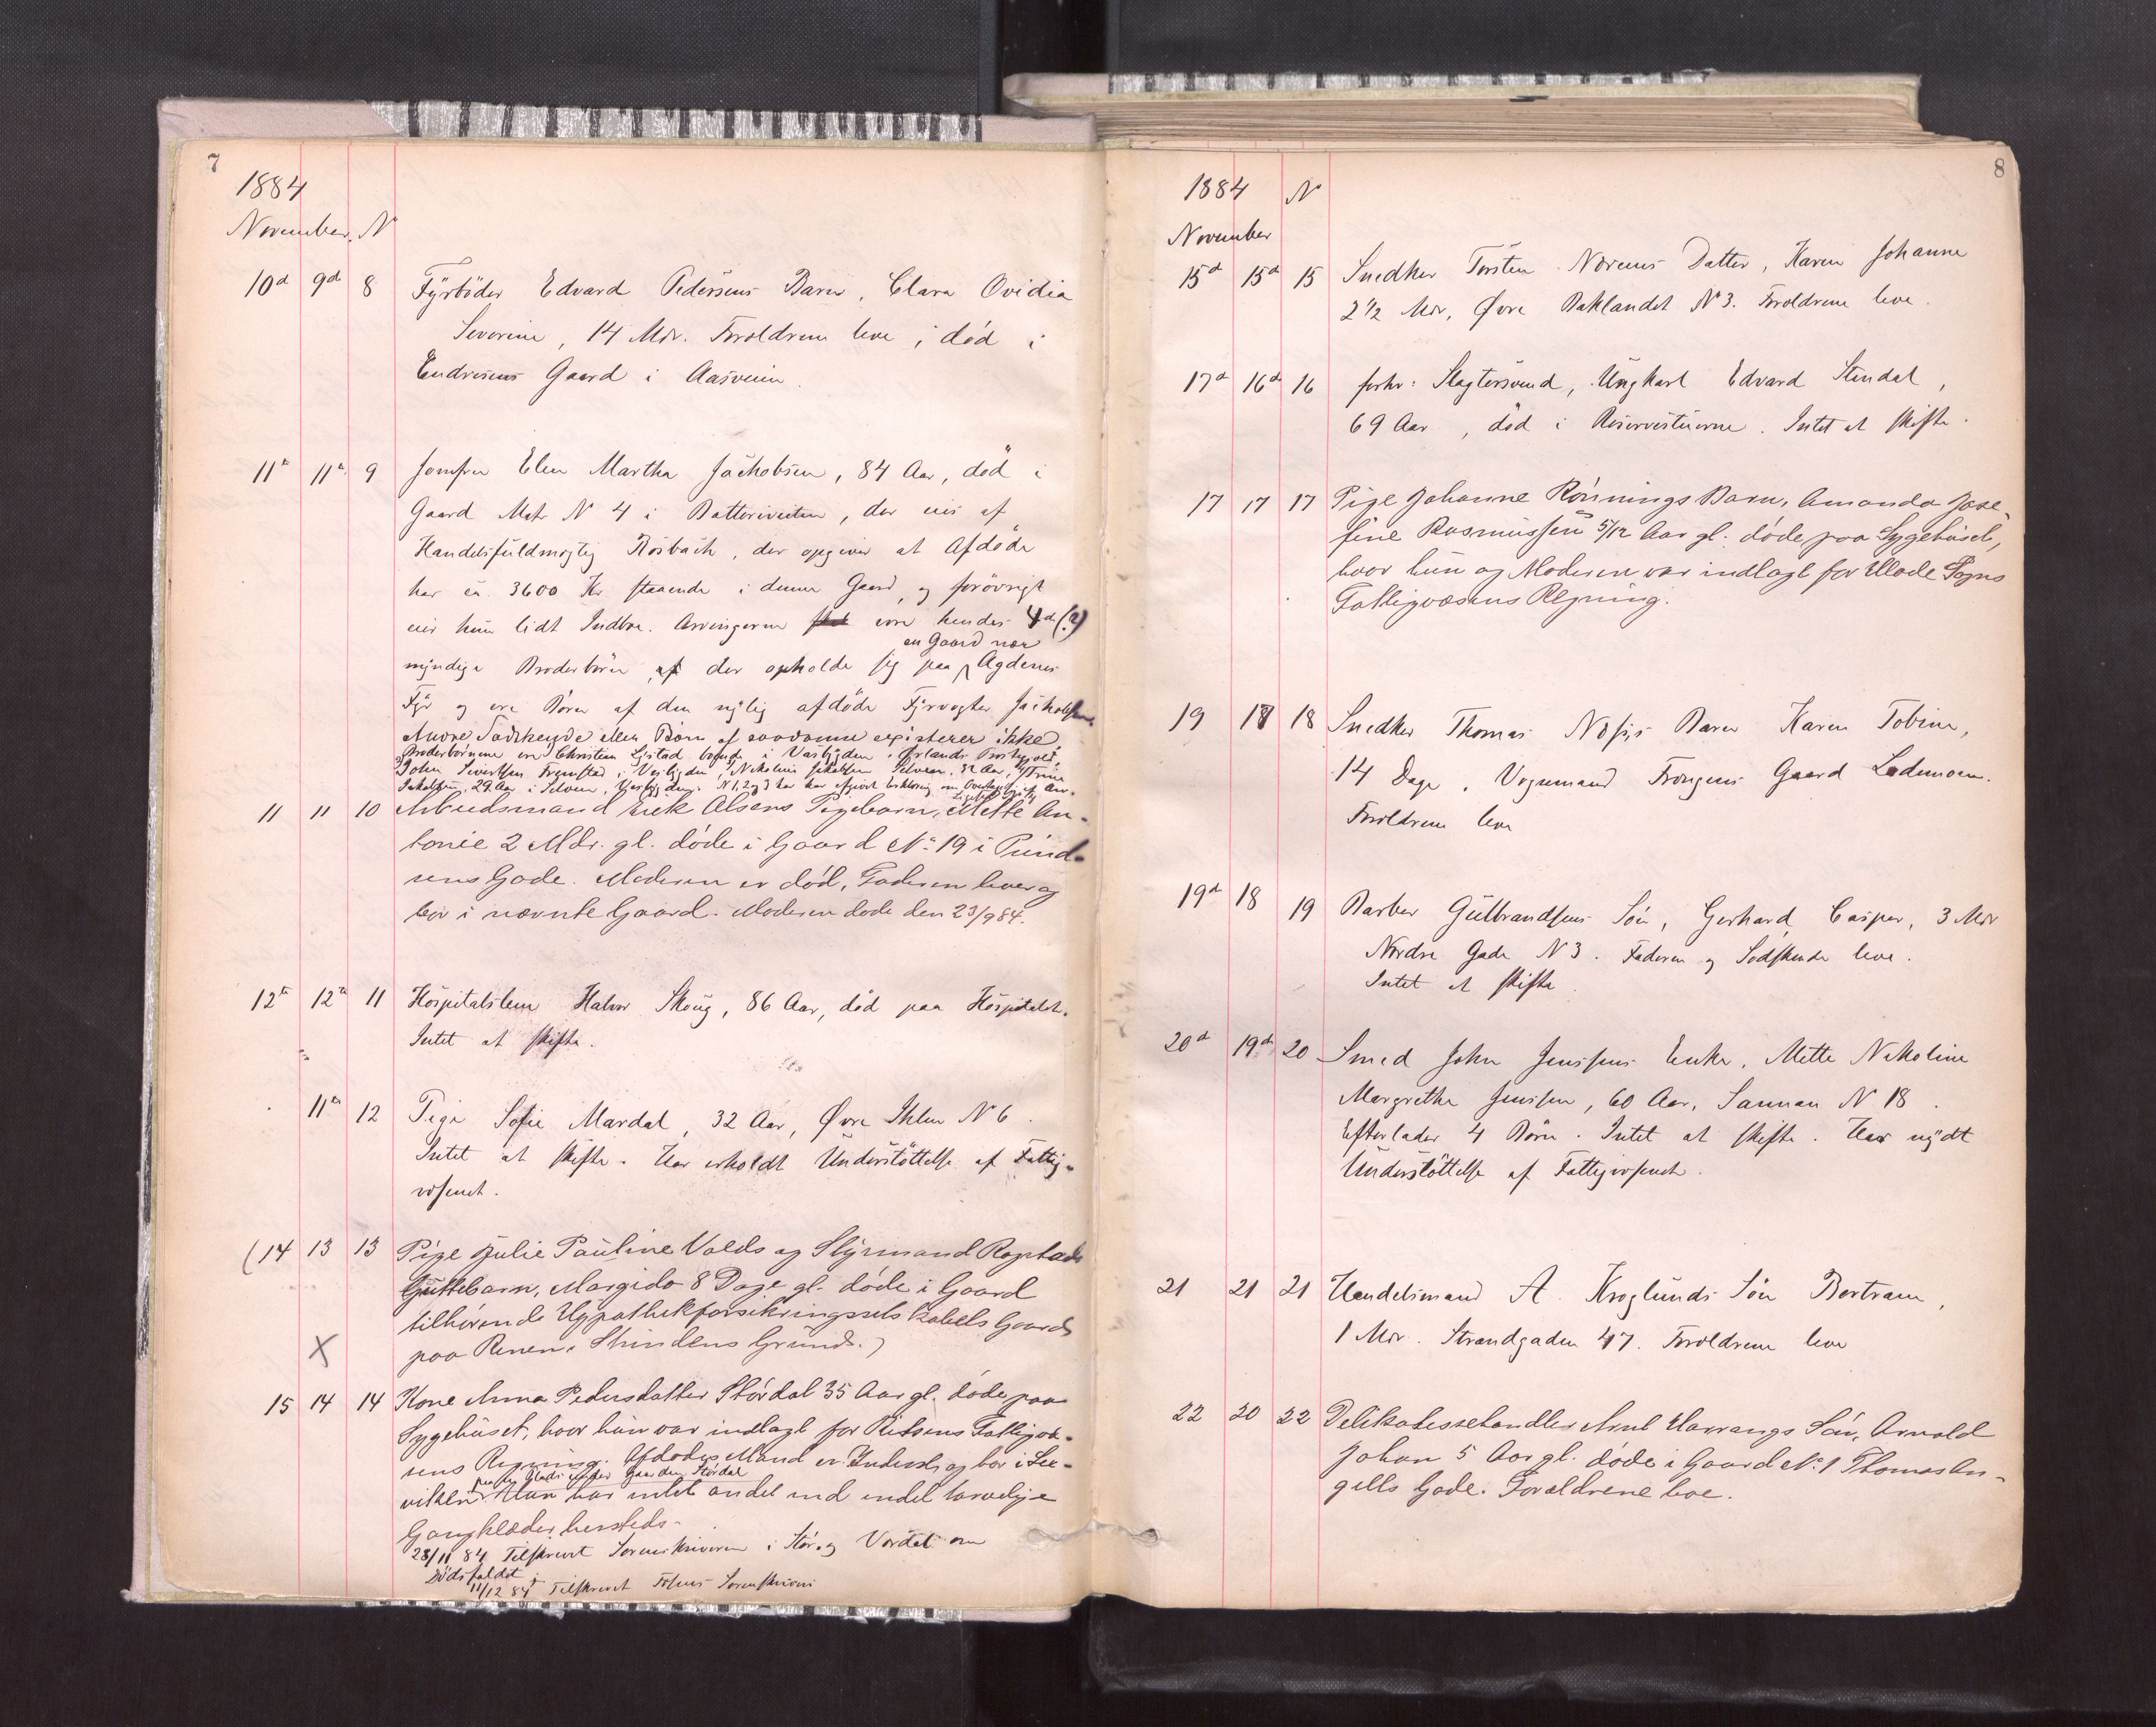 7
1884
November. N
10d 9d 8 Fyrbøder Edvard Pedersens Barn, Clara Ovidia
Severine, 14 Mdr. Forældrene leve; død i
Endresens Gaard i Aasveien.
11te 11te 9 Jomfru Elen Martha Jachobsen, 84 Aar, død i
Gaard Matr N 4 i Batteriveiten, der eies af
Handelsfuldmægtig Rosbach, der opgiver at Afdøde
har ca. 3600 Kr staaende i denne Gaard, og forøvrigt
eier hun lidt Indbo. Arvingerne ere hendes 4de (?)
en Gaard nær
myndige Broderbørn, der opholde sig paa Agdenes
Fyr og ere Børn af den nylig afdøde Fyrvogter Jachobsen
Andre Sødskende eller Børn af saadanne existerer ikke
Broderbørnene ere Christian Lystad boende i Vasbygden, Ørlands Præstegjeld,
John Sivertsen Fremstad i Vasbygden, Nikoline Jakobsen Selven, 32 Aar, Trine
Jakobsen, 29 Aar i Selven, Vasbygden. N 1, 2 og 3 har har afgivet Erklæring om Overtagelse af
11 11 10 Arbeidsmand Erik Olsens Pigebarn, Mette An-
tonie 2 Mdr. gl. døde i Gaard No 19 i Puind-
sens Gade. Moderen er død, Faderen lever og
bor i nævnte Gaard. Moderen døde den 23/9 84.
12te 12te 11 Hospitalslem Halvor Skoug, 86 Aar, død paa Hospitalet.
Intet at skifte.
11te 12 Pige Sofie Mardal, 32 Aar, Øvre Ihlen No 6.
Intet at skifte. Har erholdt Understøttelse af Fattig-
væsenet.
(14 13 13 Pige Julie Pauline Valds og Styrmand Ropstads
Guttebarn, Margido 8 Dage gl. døde i Gaard
tilhørende Hypothekforsikringsselskabets Gaard
X paa Grund.)
15 14 14 Kone Anna Pedersdatter Stördal 35 Aar gl. døde paa
Sygehuset, hvor hun var indlagt for Ritsens Fattigvæ-
sens Regning. Afdødes Mand er Inderst og bor i Lex-
paa Plads under Gaarden Stördal
viken. Hun har intet andet end endel tarvelige
Gangklæder hersteds.
28/11 84 Tilskrevet Sorenskriveren i Stør og Værdal om
Dødsfaldet;
11/12 84 Tilskrevet Fosens Sorenskriveri
8
1884 N
November
15d 15d 15 Snedker Torsten Norems Datter, Karen Johanne
2 1/2 Mdr, Øvre Baklandet No 3. Forældrene leve.
17d 16d 16 forhv: Slagtersvend, Ungkarl Edvard Stendal,
69 Aar, død i Reservestuerne. Intet at skifte.
17 17 17 Pige Johanne Rönnings Barn, Amanda Jose-
fine Rasmussen 5/12 Aar gl. døde paa Sygehuset,
hvor hun og Moderen var indlagt for Sogns
Fattigvæsens Regning.
19 18 18 Snedker Thomas Næss's Barn Karen Tobine,
14 Dage, Vognmand Trongens Gaard Lademoen.
Forældrene leve
19d 18 19 Barber Gulbrandsens Søn, Gerhard Casper, 3 Mdr
Nordre Gade N 3. Faderen og Sødskende leve.
Intet at skifte.
20d 19d 20 Smed John Jenssens Enke, Mette Nikoline
Margrethe Jenssen, 60 Aar, Sannan N 18.
Efterlader 4 Børn. Intet at skifte. Har nydt
Understøttelse af Fattigvæsenet.
21 21 21 Handelsmand A. Kroglunds Søn Bertram,
1 Mdr. Strandgaden 47. Forældrene leve
22 20 22 Delikatessehandler Arnt Harrangs Søn, Arnold
Johan 5 Aar gl. døde i Gaard No 1 Thomas An-
gells Gade. Forældrene leve.